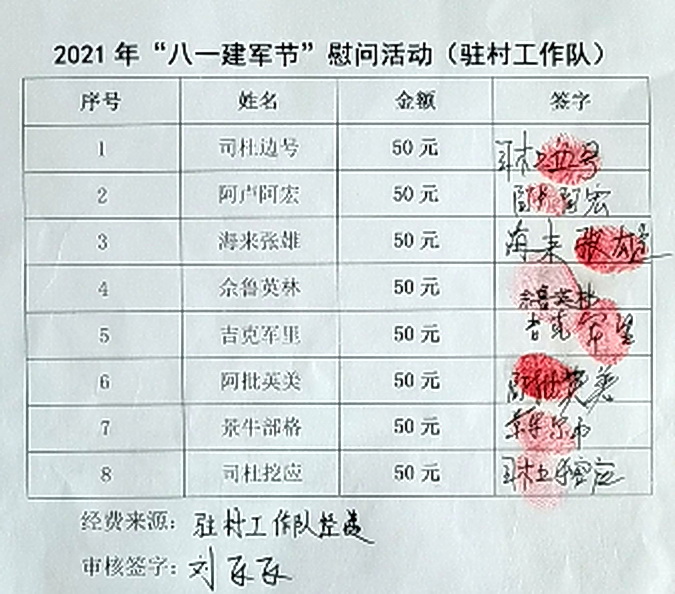 2021年“八一建军节”慰问活动（驻村工作队）
序号 姓名 金额 签字
1 司杜边号 50元
2 阿卢阿宏 50元 阿卢阿宏
3 海来张雄 50元 海来张雄
4 佘鲁英林 50元 佘鲁英林
5 吉克军里 50元 吉克军里
6 阿批英美 50元 阿批英美
7 景牛部格 50元
8 司杜挖应 50元 司杜挖应
经费来源：驻村工作队经费
审核签字：刘